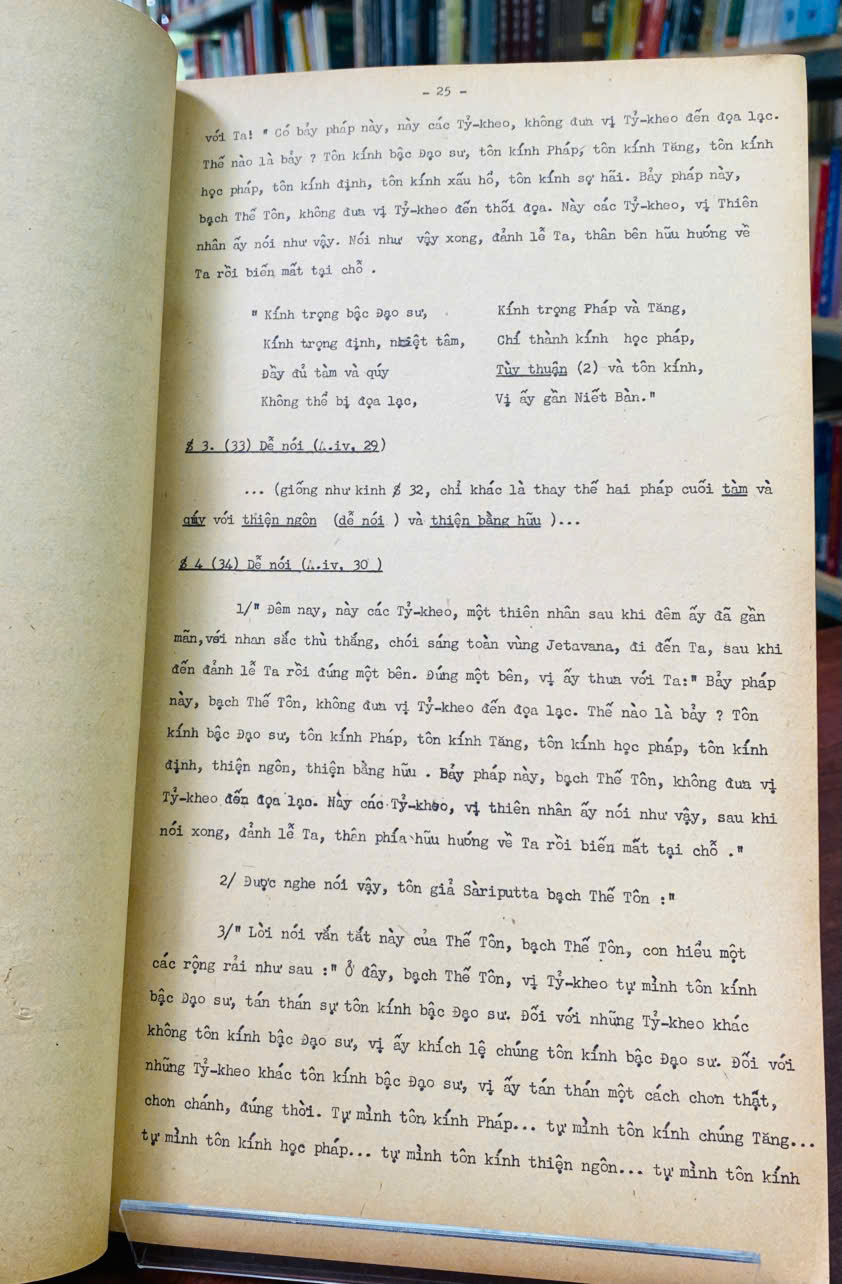 - 25 -
với Ta! " Có bảy pháp này, này các Tỷ-kheo, không đưa vị Tỷ-kheo đến đọa lạc.
Thế nào là bảy ? Tôn kính bậc Đạo sư, tôn kính Pháp, tôn kính Tăng, tôn kính
học pháp, tôn kính định, tôn kính xấu hổ, tôn kính sợ hãi. Bảy pháp này,
bạch Thế Tôn, không đưa vị Tỷ-kheo đến thối đọa. Này các Tỷ-kheo, vị Thiên
nhân ấy nói như vậy. Nói như vậy xong, đảnh lễ Ta, thân bên hữu hướng về
Ta rồi biến mất tại chỗ .
" Kính trọng bậc Đạo sư, Kính trọng Pháp và Tăng,
Kính trọng định, nhiệt tâm, Chí thành kính học pháp,
Đầy đủ tàm và quý Tùy thuận (2) và tôn kính,
Không thể bị đọa lạc, Vị ấy gần Niết Bàn."
$ 3. (33) Dễ nói (A.iv, 29)
... (giống như kinh $ 32, chỉ khác là thay thế hai pháp cuối tàm và
quý với thiện ngôn (dễ nói ) và thiện bằng hữu )...
$ 4 (34) Dễ nói (A.iv, 30 )
1/" Đêm nay, này các Tỷ-kheo, một thiên nhân sau khi đêm ấy đã gần
mãn, với nhan sắc thù thắng, chói sáng toàn vùng Jetavana, đi đến Ta, sau khi
đến đảnh lễ Ta rồi đứng một bên. Đứng một bên, vị ấy thưa với Ta:" Bảy pháp
này, bạch Thế Tôn, không đưa vị Tỷ-kheo đến đọa lạc. Thế nào là bảy ? Tôn
kính bậc Đạo sư, tôn kính Pháp, tôn kính Tăng, tôn kính học pháp, tôn kính
định, thiện ngôn, thiện bằng hữu . Bảy pháp này, bạch Thế Tôn, không đưa vị
Tỷ-kheo đến đọa lạc. Này các Tỷ-kheo, vị thiên nhân ấy nói như vậy, sau khi
nói xong, đảnh lễ Ta, thân phía hữu hướng về Ta rồi biến mất tại chỗ ."
2/ Được nghe nói vậy, tôn giả Sàriputta bạch Thế Tôn :"
3/" Lời nói vắn tắt này của Thế Tôn, bạch Thế Tôn, con hiểu một
các rộng rải như sau :" Ở đây, bạch Thế Tôn, vị Tỷ-kheo tự mình tôn kính
bậc Đạo sư, tán thán sự tôn kính bậc Đạo sư. Đối với những Tỷ-kheo khác
không tôn kính bậc Đạo sư, vị ấy khích lệ chúng tôn kính bậc Đạo sư. Đối với
những Tỷ-kheo khác tôn kính bậc Đạo sư, vị ấy tán thán một cách chơn thật,
chơn chánh, đúng thời. Tự mình tôn kính Pháp... tự mình tôn kính chúng Tăng...
tự mình tôn kính học pháp... tự mình tôn kính thiện ngôn... tự mình tôn kính